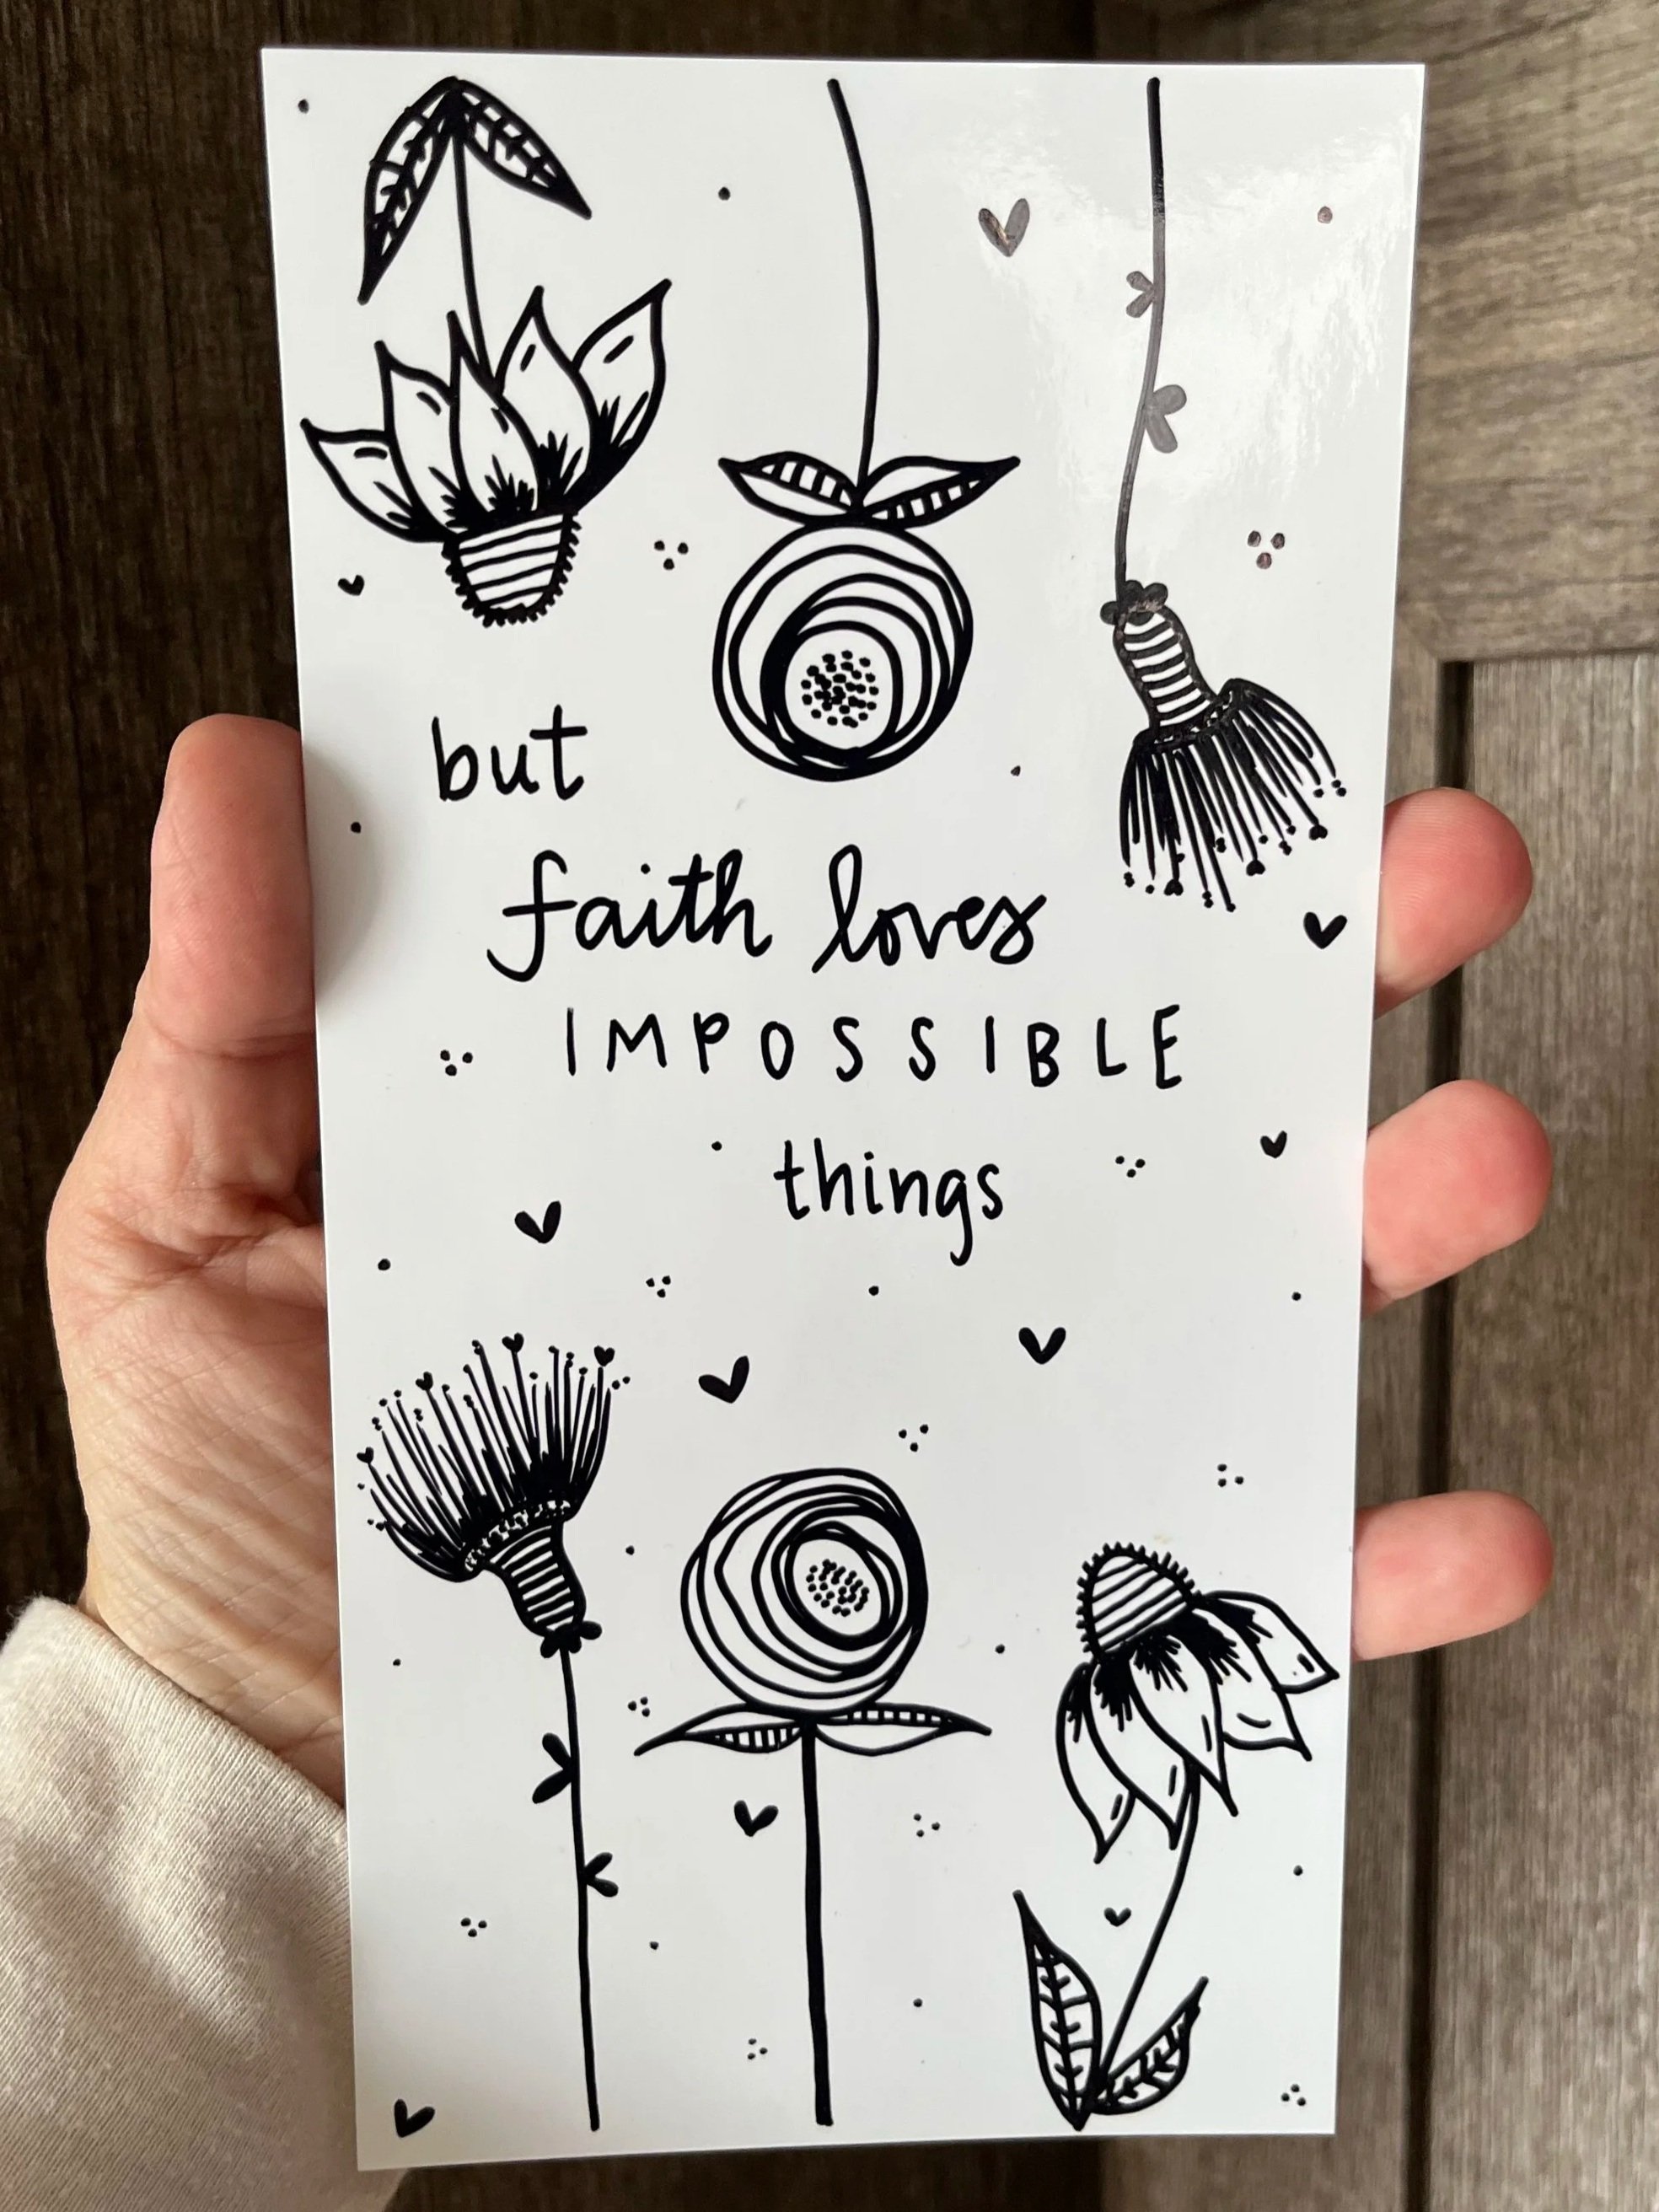 but
faith loves
IMPOSSIBLE
things